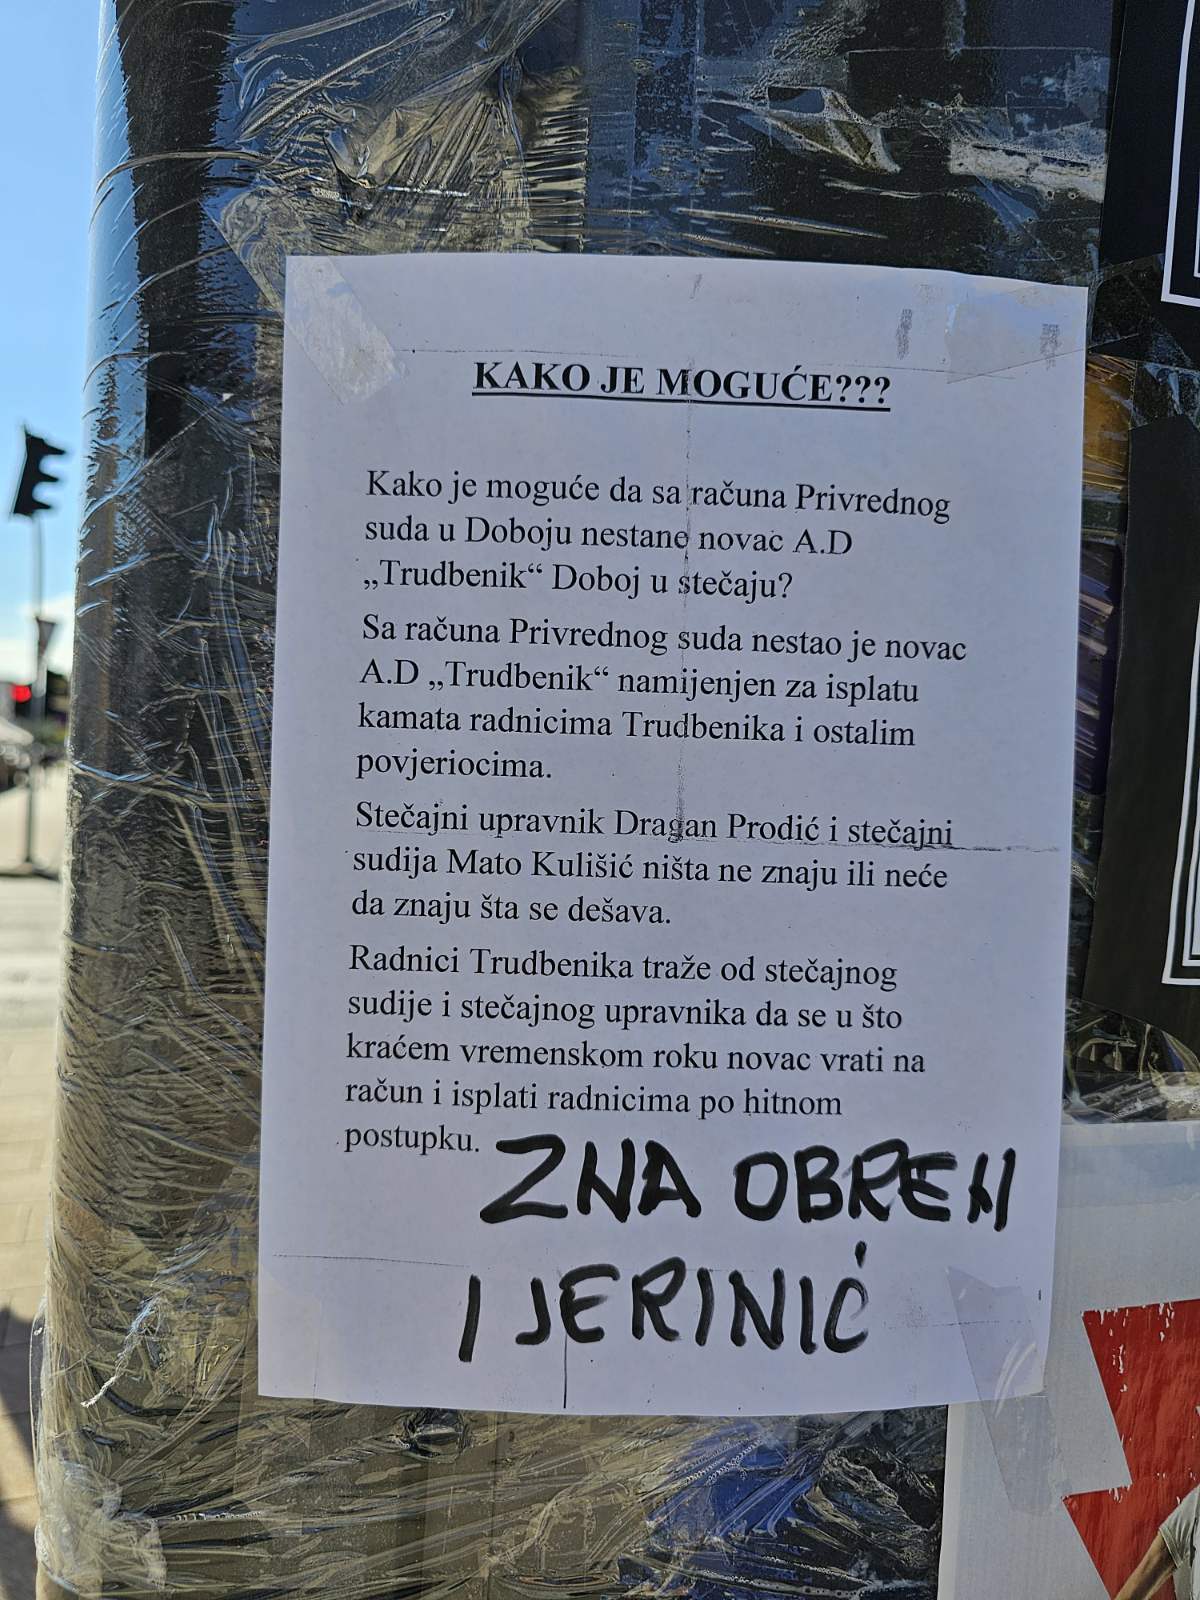 KAKO JE MOGUĆE???
Kako je moguće da sa računa Privrednog
suda u Doboju nestane novac A.D
„Trudbenik“ Doboj u stečaju?
Sa računa Privrednog suda nestao je novac
A.D „Trudbenik“ namijenjen za isplatu
kamata radnicima Trudbenika i ostalim
povjeriocima.
Stečajni upravnik Dragan Prodić i stečajni
sudija Mato Kulišić ništa ne znaju ili neće
da znaju šta se dešava.
Radnici Trudbenika traže od stečajnog
sudije i stečajnog upravnika da se u što
kraćem vremenskom roku novac vrati na
račun i isplati radnicima po hitnom
postupku.
ZNA OBREN
I JERINIĆ